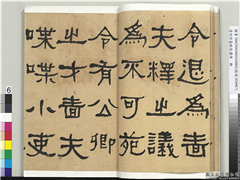 令退為嗇
夫釋之議
為不可苑
令有公卿
之才嗇夫
喋喋小吏
6